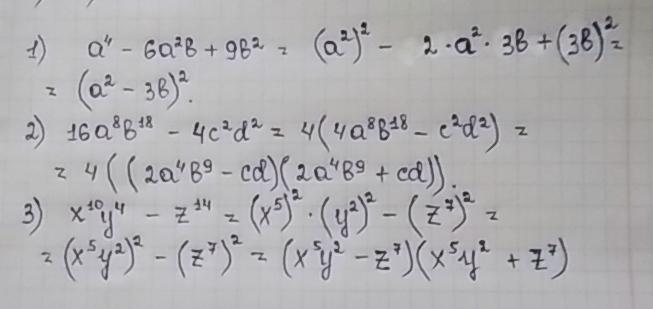 1) a⁴ - 6a²b + 9b² = (a²)² - 2·a²·3b + (3b)² =
= (a² - 3b)².
2) 16a⁸b¹⁸ - 4c²d² = 4(4a⁸b¹⁸ - c²d²) =
= 4((2a⁴b⁹ - cd)(2a⁴b⁹ + cd)).
3) x¹⁰y⁴ - z¹⁴ = (x⁵)²·(y²)² - (z⁷)² =
= (x⁵y²)² - (z⁷)² = (x⁵y² - z⁷)(x⁵y² + z⁷)